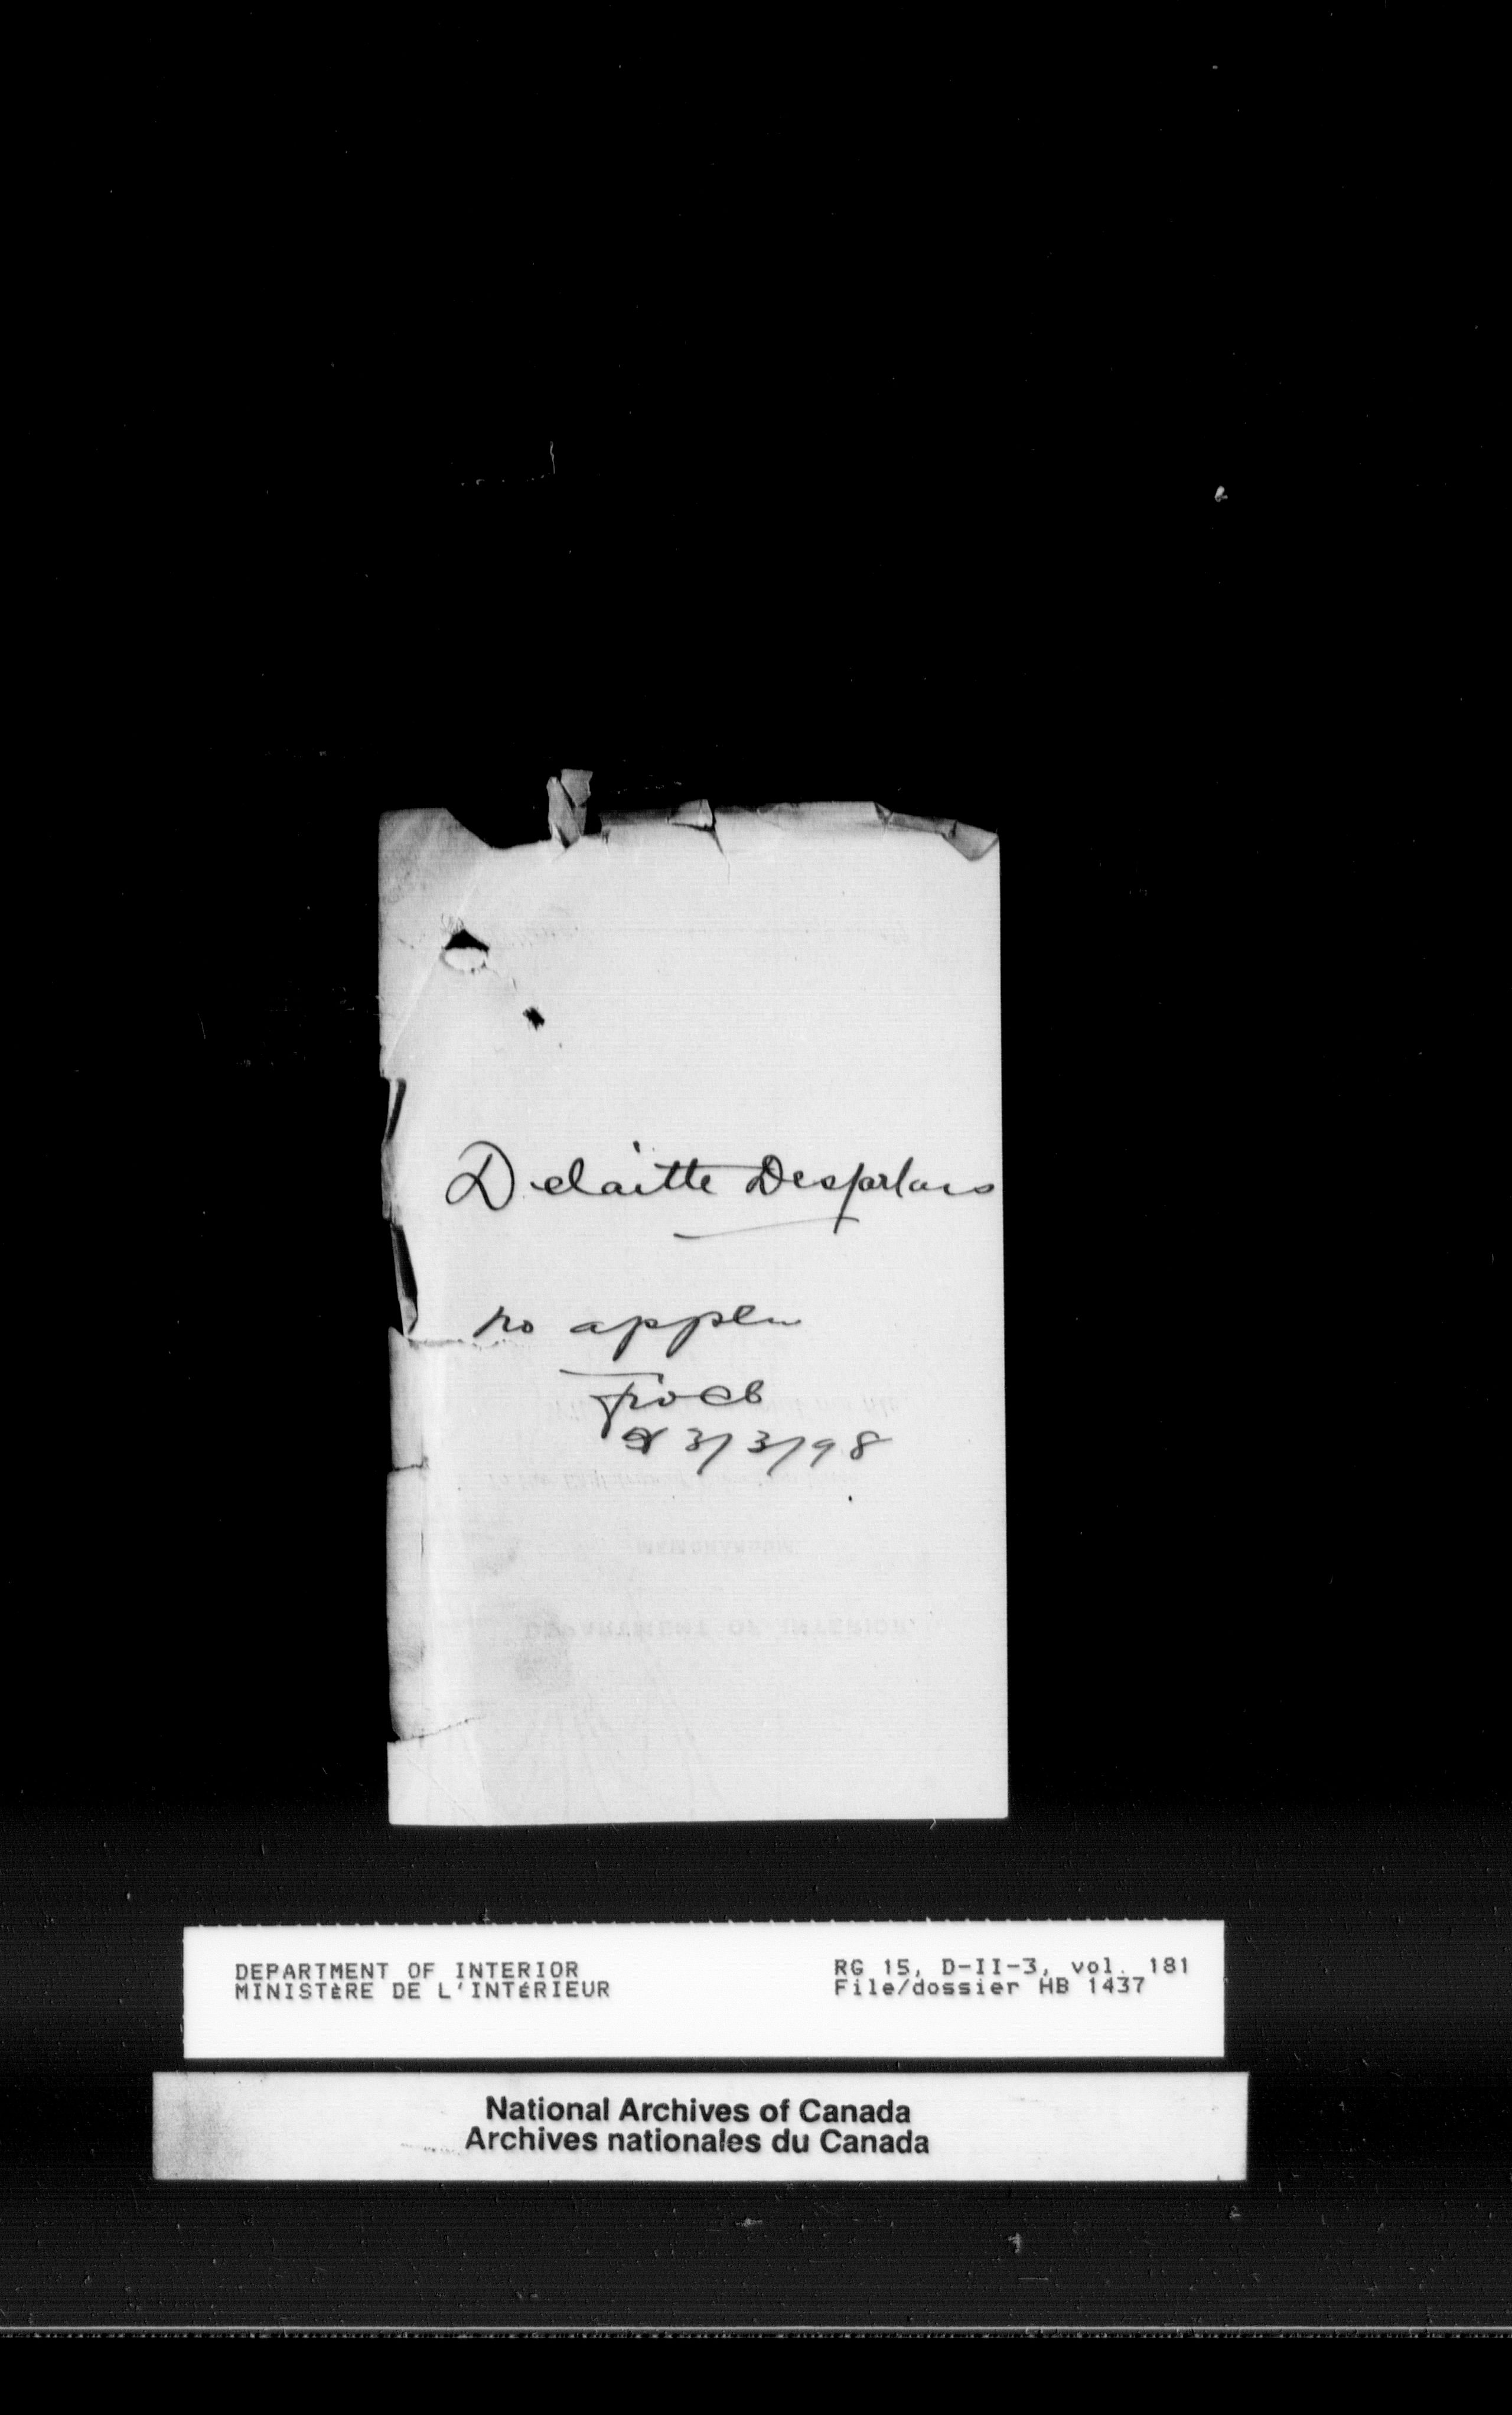 Delaitte Desjarlais
no appln
23/3/98
DEPARTMENT OF INTERIOR
MINISTÈRE DE L'INTÉRIEUR
RG 15, D-II-3, vol. 181
File/dossier HB 1437
National Archives of Canada
Archives nationales du Canada